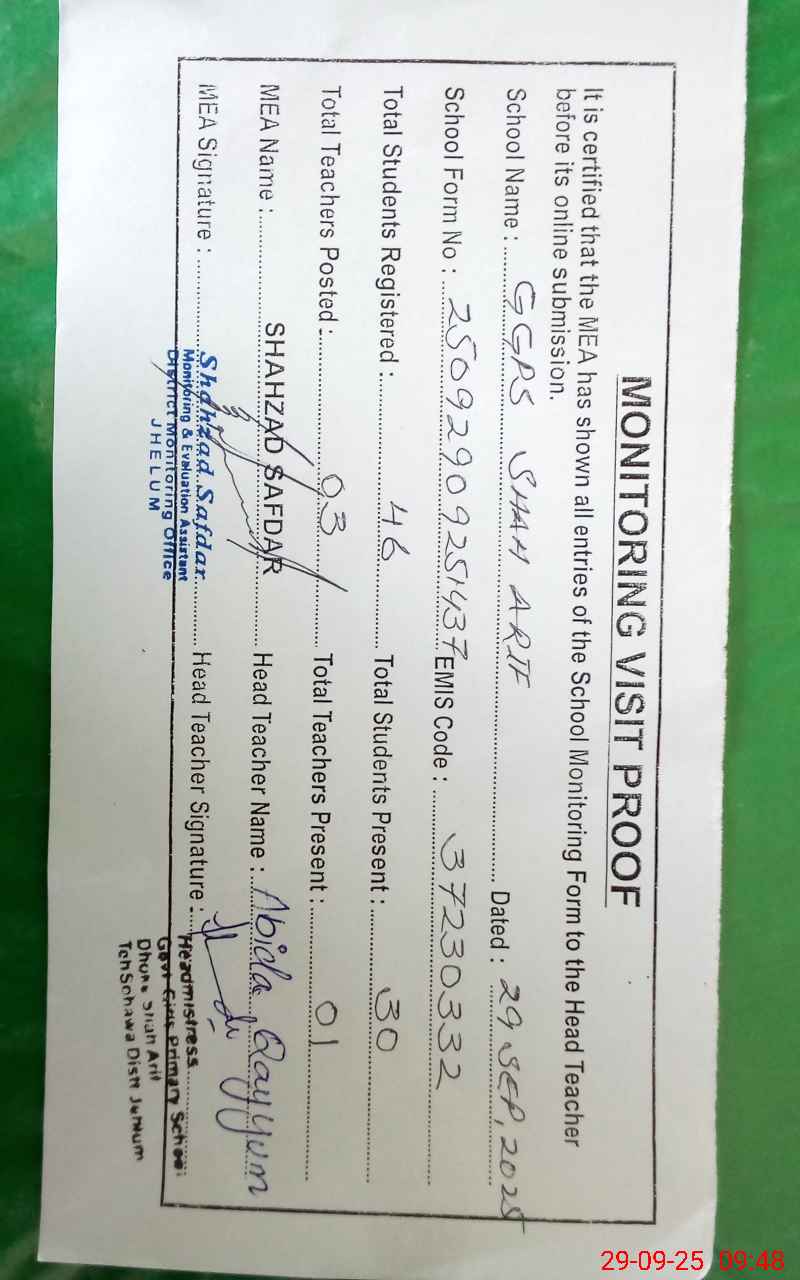 MONITORING VISIT PROOF
It is certified that the MEA has shown all entries of the School Monitoring Form to the Head Teacher
before its online submission.
School Name : GGPS SHAH ARIF Dated : 29 SEP, 2025
School Form No : 25092909251437 EMIS Code : 37230332
Total Students Registered : 46 Total Students Present : 30
Total Teachers Posted : 03 Total Teachers Present : 01
MEA Name : SHAHZAD SAFDAR Head Teacher Name : Abida Qayyum
MEA Signature : Head Teacher Signature :
Shahzad Safdar
Monitoring & Evaluation Assistant
District Monitoring Office
JHELUM
Headmistress
Govt Girls Primary School
Dhoke Shah Arif
Teh Sohawa Distt Jehlum
29-09-25 09:48